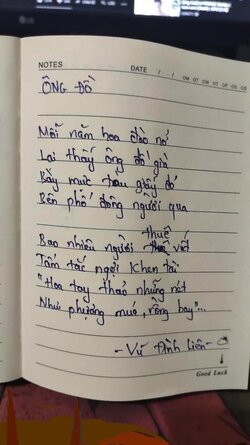 NOTES DATE / /
ÔNG ĐỒ
Mỗi năm hoa đào nở
Lại thấy ông đồ già
Bày mực tàu giấy đỏ
Bên phố đông người qua
Bao nhiêu người thuê viết
Tấm tắc ngợi khen tài
"Hoa tay thảo những nét
Như phượng múa, rồng bay"...
- Vũ Đình Liên -
Good Luck
LG